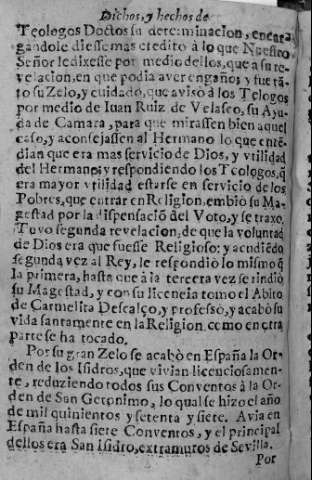 Dichos, y hechos de
Teologos Doctos su determinacion, encar
gandole diesse mas credito à lo que Nuestro
Señor le dixesse por medio dellos, que a su re
velacion, en que podia aver engaño; y fue tã
to su Zelo, y cuidado, que avisò à los Teologos
por medio de Iuan Ruiz de Velasco, su Ayu
da de Camara, para que mirassen bien aquel
caso, y aconsejassen al Hermano lo que entẽ
dian que era mas servicio de Dios, y vtilidad
del Hermano; y respondiendo los Teologos, q̃
era mayor vtilidad estarse en servicio de los
Pobres, que entrar en Religion, embiò su Ma
gestad por la dispensaciõ del Voto, y se traxo.
Tuvo segunda revelacion, de que la voluntad
de Dios era que fuesse Religioso: y acudiẽdo
segunda vez al Rey, le respondiò lo mismo q̃
la primera, hasta que à la tercera vez se rindiò
su Magestad, y con su licencia tomo el Abito
de Carmelita Descalço, y professò, y acabò su
vida santamente en la Religion, como en otra
parte se ha tocado.
Por su gran Zelo se acabò en España la Or
den de los Isidros, que vivian licenciosamen-
te, reduziendo todos sus Conventos à la Or-
den de San Geronimo, lo qual se hizo el año
de mil quinientos y setenta y siete. Avia en
España hasta siete Conventos, y el principal
dellos era San Isidro, extramuros de Sevilla.
Por